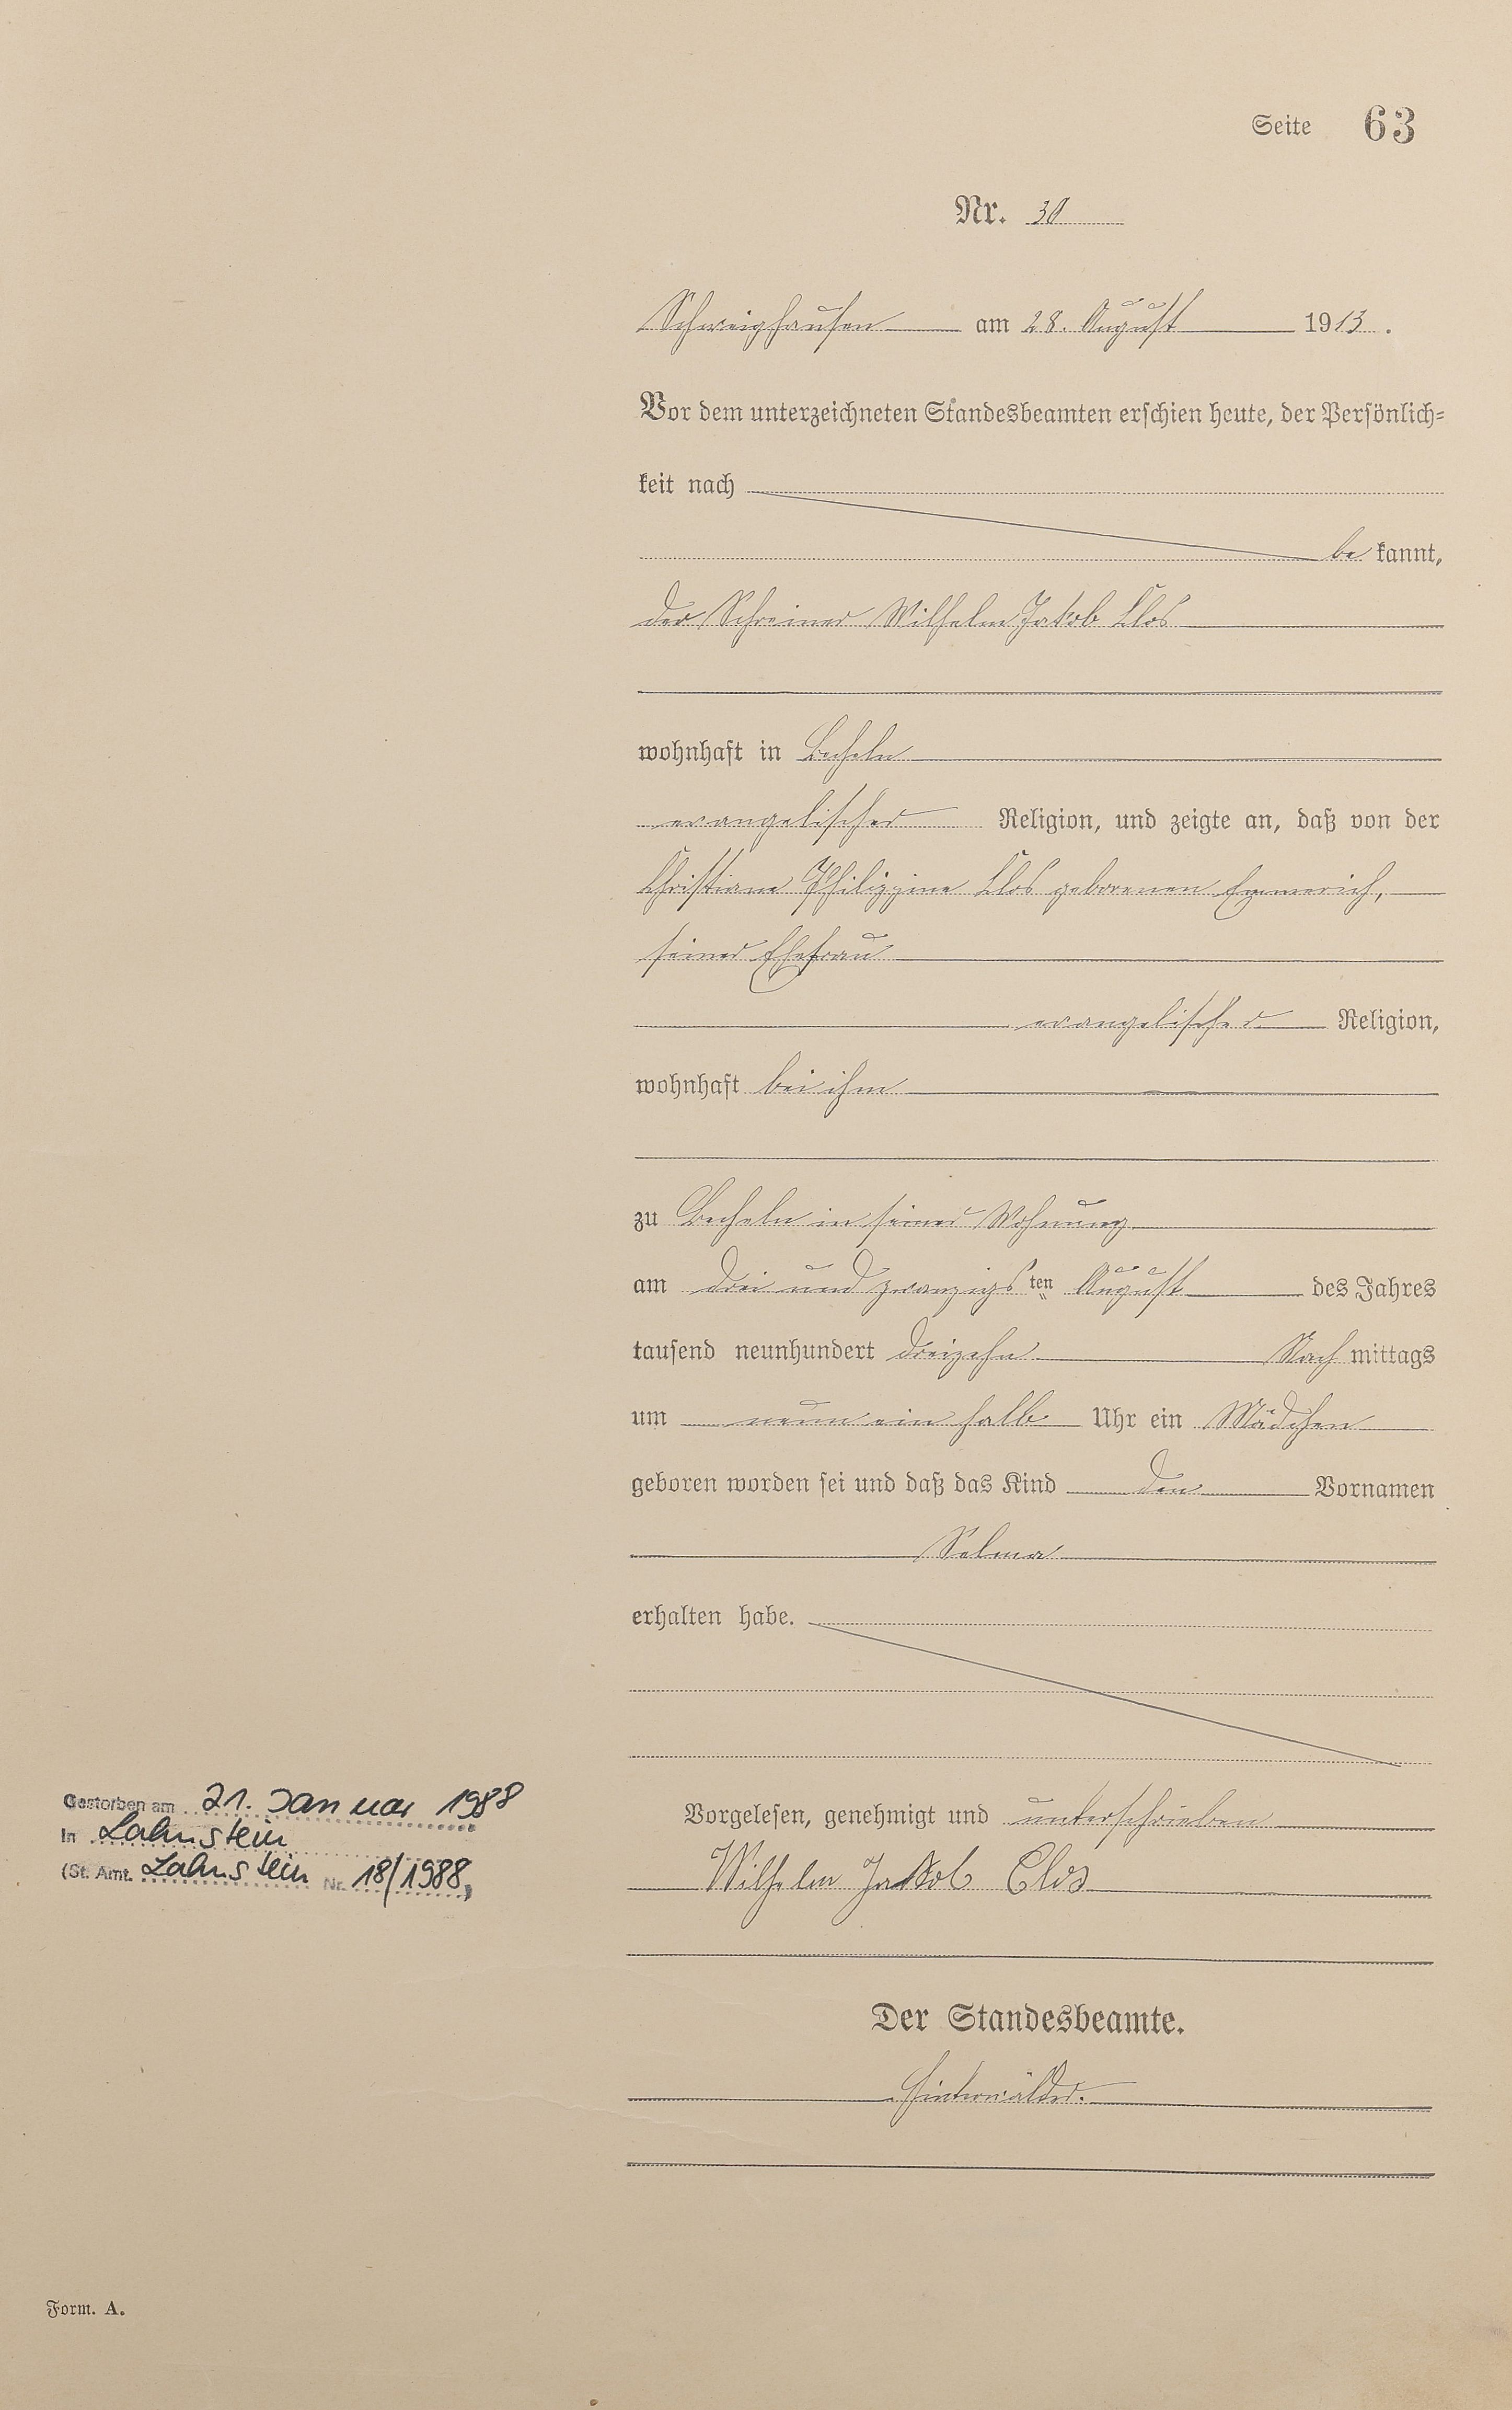 Seite 63
Nr. 30
Schweighausen am 28. August 1913.
Vor dem unterzeichneten Standesbeamten erschien heute, der Persönlich-
keit nach
be kannt,
der Schreiner Wilhelm Jakob Clos
wohnhaft in Becheln
evangelischer Religion, und zeigte an, daß von der
Christiane Philippine Clos geborenen Emmerich,
seiner Ehefrau
evangelischer Religion,
wohnhaft bei ihm
zu Becheln in seiner Wohnung
am drei und zwanzigsten August des Jahres
tausend neunhundert dreizehn Nachmittags
um neun ein halb Uhr ein Mädchen
geboren worden sei und daß das Kind den Vornamen
Selma
erhalten habe.
Gestorben am 21. Januar 1988
In Lahnstein
(St. Amt. Lahnstein Nr. 18/1988)
Vorgelesen, genehmigt und unterschrieben
Wilhelm Jakob Clos
Der Standesbeamte.
Hinterwälder.
Form. A.